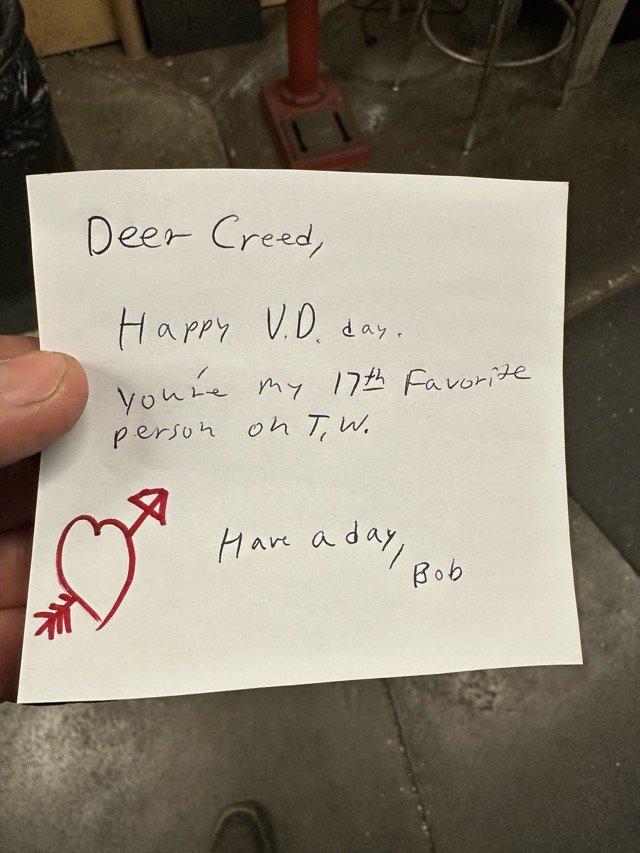 Deer Creed,
Happy V.D. day.
You're my 17th Favorite
person on T.W.
Have a day,
Bob